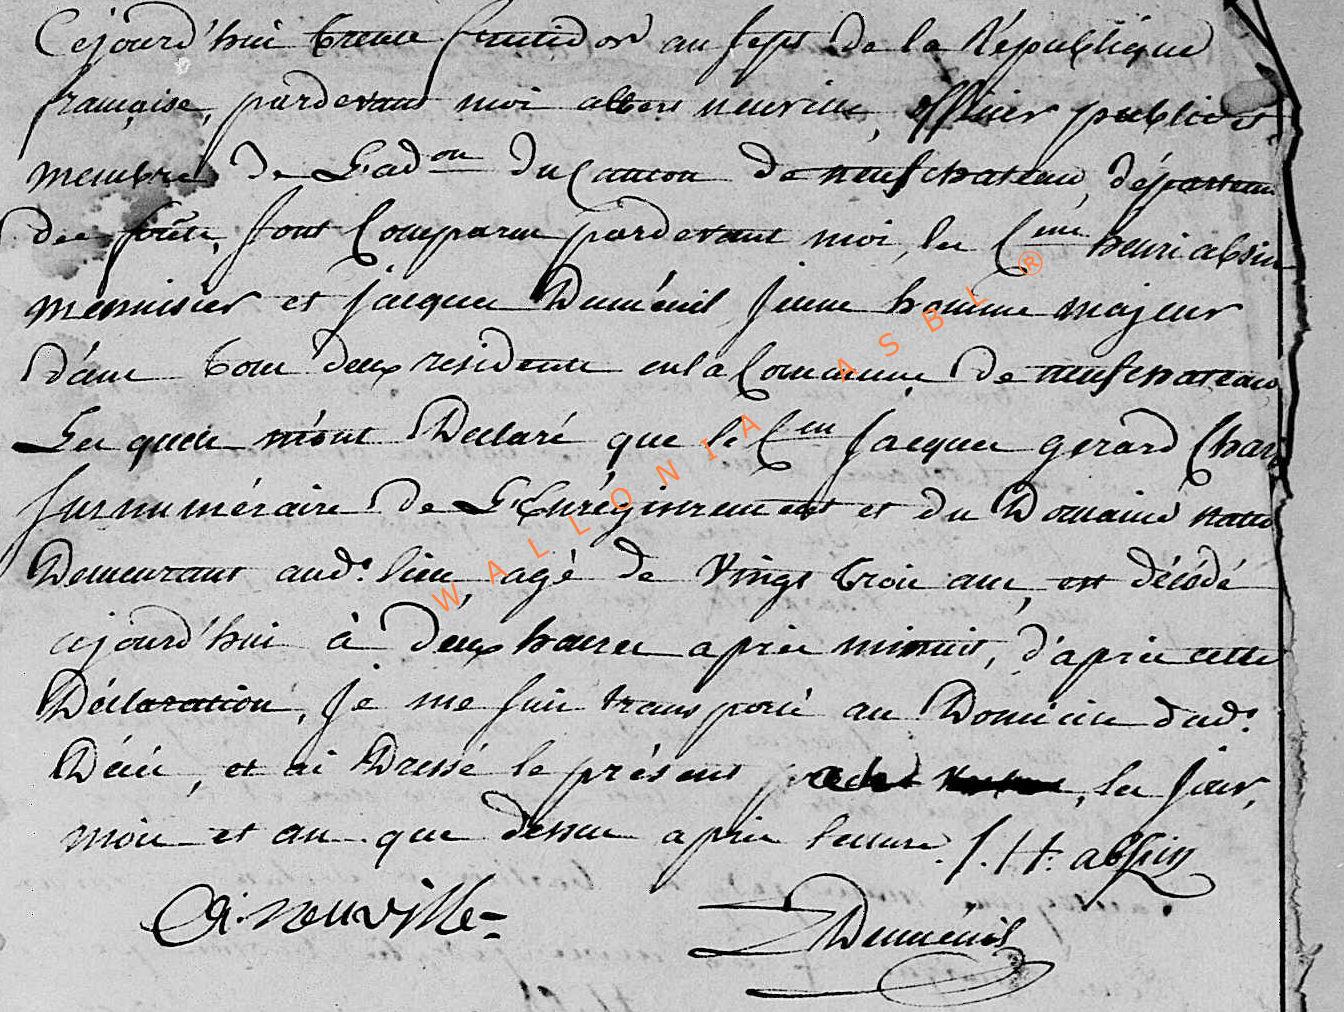 Cejourd'hui trente fructidor an sept de la République
française, pardevant moi albert neuville, officier public et
membre de L'ad.on du Canton de neufchateau, départem
des forêts, sont Comparus pardevant moi, les C.ens henri absin
menuisier et jacques Duménil jeune homme majeur
d'ans tous deux residents en la Commune de neufchateau
Les quels m'ont Declaré que le C.en Jacques gerard
surnuméraire de L'Enrégistrement et du Domaine natio
Demeurant aud.t lieu, agé de vingt trois ans, est décédé
cejourd'hui à deux heures après minuit, d'après cette
Déclaration, Je me suis transporté au Domicile dud.t
Décédé, et ai Dressé le présent acte, les jour,
mois et an que dessus après lecture. J. H. absin
A. neuville
Duménil
WALLONIA ASBL ®